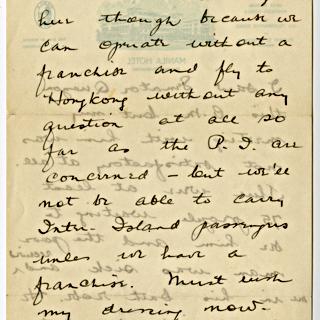 her though because we
can operate without a
franchise and fly to
Hongkong without any
question at all so
far as the P. I. are
concerned – but we'll
not be able to carry
Inter-Island passengers
unless we have a
franchise. Must rush
my dressing now.
MANILA HOTEL